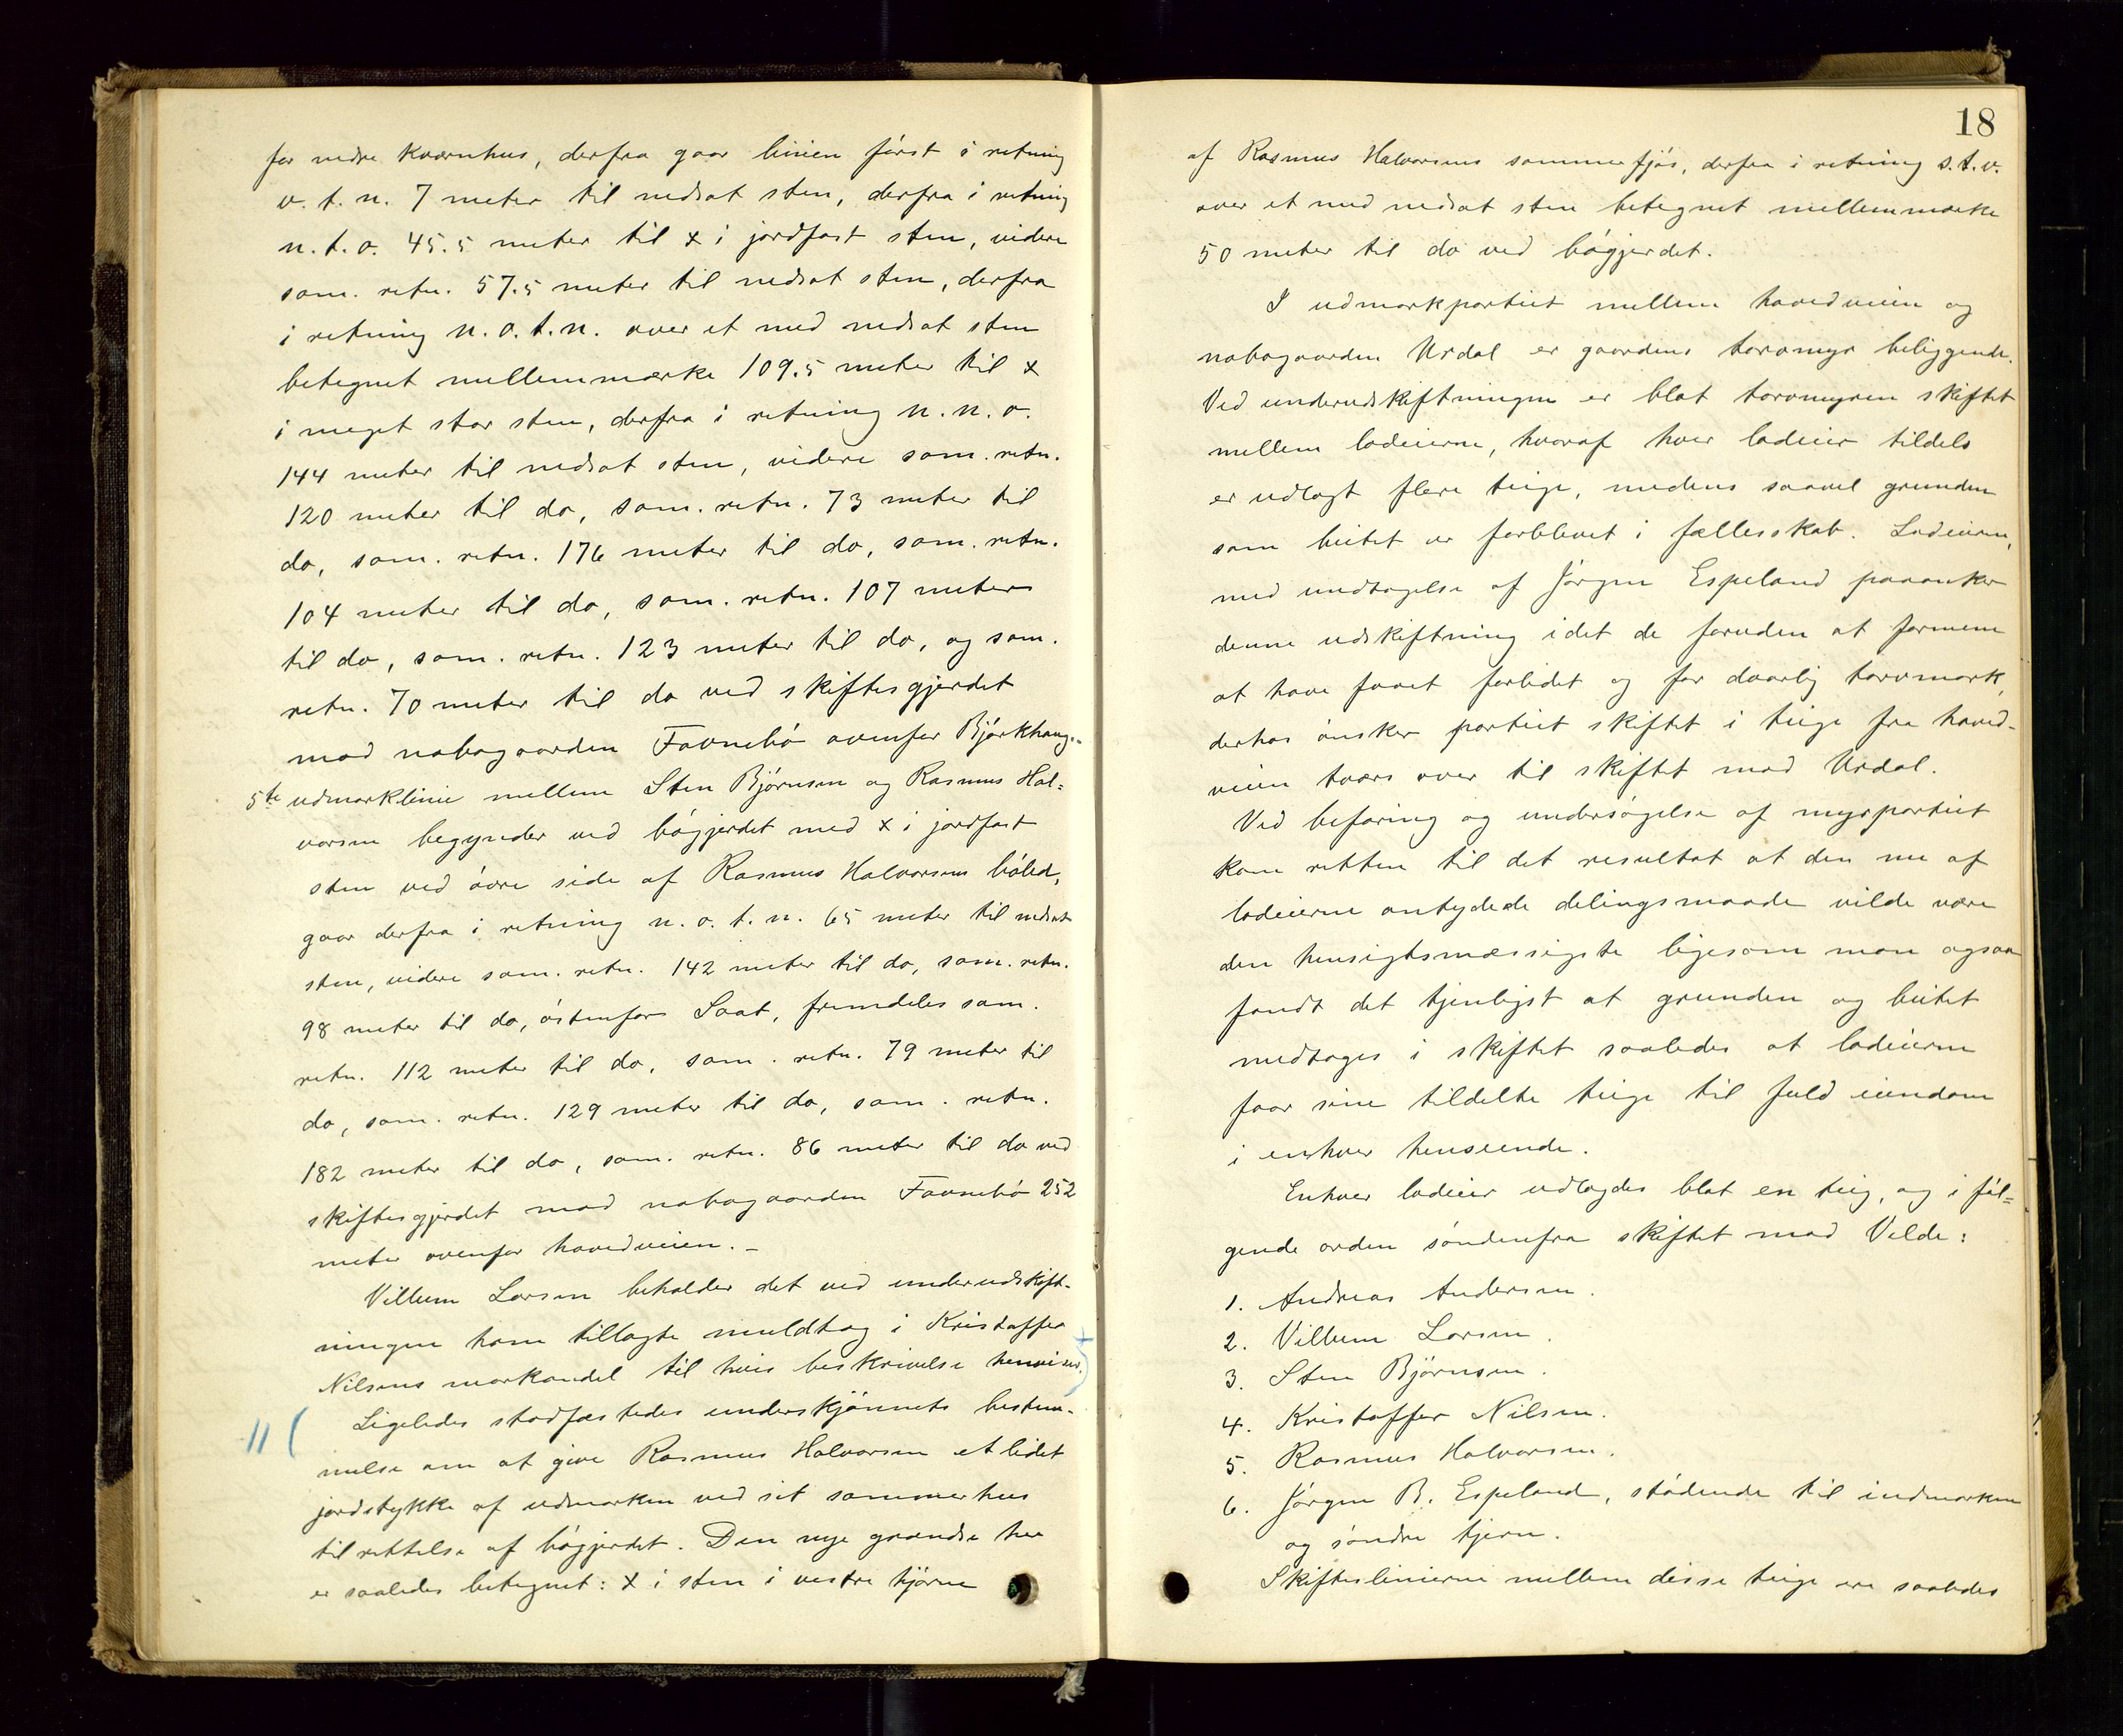 for nedre kværnhus, derfra gaar linien først i retning
v. t. n. 7 meter til nedsat sten, derfra i retning
n. t. o. 45.5 meter til x i jordfast sten, videre
sam. retn. 57.5 meter til nedsat sten, derfra
i retning n. o. t. n. over et med nedsat sten
betegnet mellemmærke 109.5 meter til x
i meget stor sten, derfra i retning n. n. o.
144 meter til nedsat sten, videre sam. retn.
120 meter til do, sam. retn. 73 meter til
do, sam. retn. 176 meter til do, sam. retn.
104 meter til do, sam. retn. 107 meter
til do, sam. retn. 123 meter til do, og sam.
retn. 70 meter til do ved skiftesgjerdet
mod nabogaarden Favnebø ovenfor Bjørkhaug.-
5te udmarklinie mellem Sten Bjørnsen og Rasmus Hal-
vorsen begynder ved bøgjerdet med x i jordfast
sten ved øvre side af Rasmus Halvorsens bøled,
gaar derfra i retning n. o. t. n. 65 meter til nedsat
sten, videre sam. retn. 142 meter til do, sam. retn.
98 meter til do, østenfor Saat, fremdeles sam.
retn. 112 meter til do, sam. retn. 79 meter til
do, sam. retn. 129 meter til do, sam. retn.
182 meter til do, sam. retn. 86 meter til do ved
skiftesgjerdet mod nabogaarden Favnebø 252
meter ovenfor hovedveien. -
Villum Larsen beholder det ved underudskift-
ningen ham tillagte muldtag i Kristoffer
Nilsens markandel til hvis beskrivelse henvises.
11 ( Ligeledes stadfæstedes underskjønnets bestem-
melse om at give Rasmus Halvorsen et lidet
jordstykke af udmarken ved sit sommerhus
til rettelse af bøgjerdet. Den nye grændse her
er saaledes betegnet: x i sten i vestre hjørne
18
af Rasmus Halvorsens sommerfjøs, derfra i retning s. t. v.
over et med nedsat sten betegnet mellemmærke
50 meter til do ved bøgjerdet.
I udmarkpartiet mellem hovedveien og
nabogaarden Urdal er gaardens torvmyr beliggende.
Ved underudskiftningen er blot torvmyren skiftet
mellem lodeierne, hvoraf hver lodeier tildels
er udlagt flere teige, medens saavel grunden
som beitet er forblevet i fællesskab. Lodeierne,
med undtagelse af Jørgen Espeland paaanker
denne udskiftning idet de foruden at formene
at have faaet forlidet og for daarlig torvmark,
derhos ønsker partiet skiftet i teige fra hoved-
veien tværs over til skiftet mod Urdal.
Ved befaring og undersøgelse af myrpartiet
kom retten til det resultat at den nu af
lodeierne antydede delingsmaade vilde være
den hensigtsmæssigste ligesom man ogsaa
fandt det tjenligst at grunden og beitet
medtages i skiftet saaledes at lodeierne
faar sine tildelte teige til fuld eiendom
i enhver henseende.
Enhver lodeier udlagdes blot en teig, og i føl-
gende orden søndenfra skiftet mod Velde:
1. Andreas Andersen.
2. Villum Larsen.
3. Sten Bjørnsen.
4. Kristoffer Nilsen.
5. Rasmus Halvorsen.
6. Jørgen B. Espeland, stødende til indmarken
og søndre tjern.
Skifteslinierne mellem disse teige ere saaledes